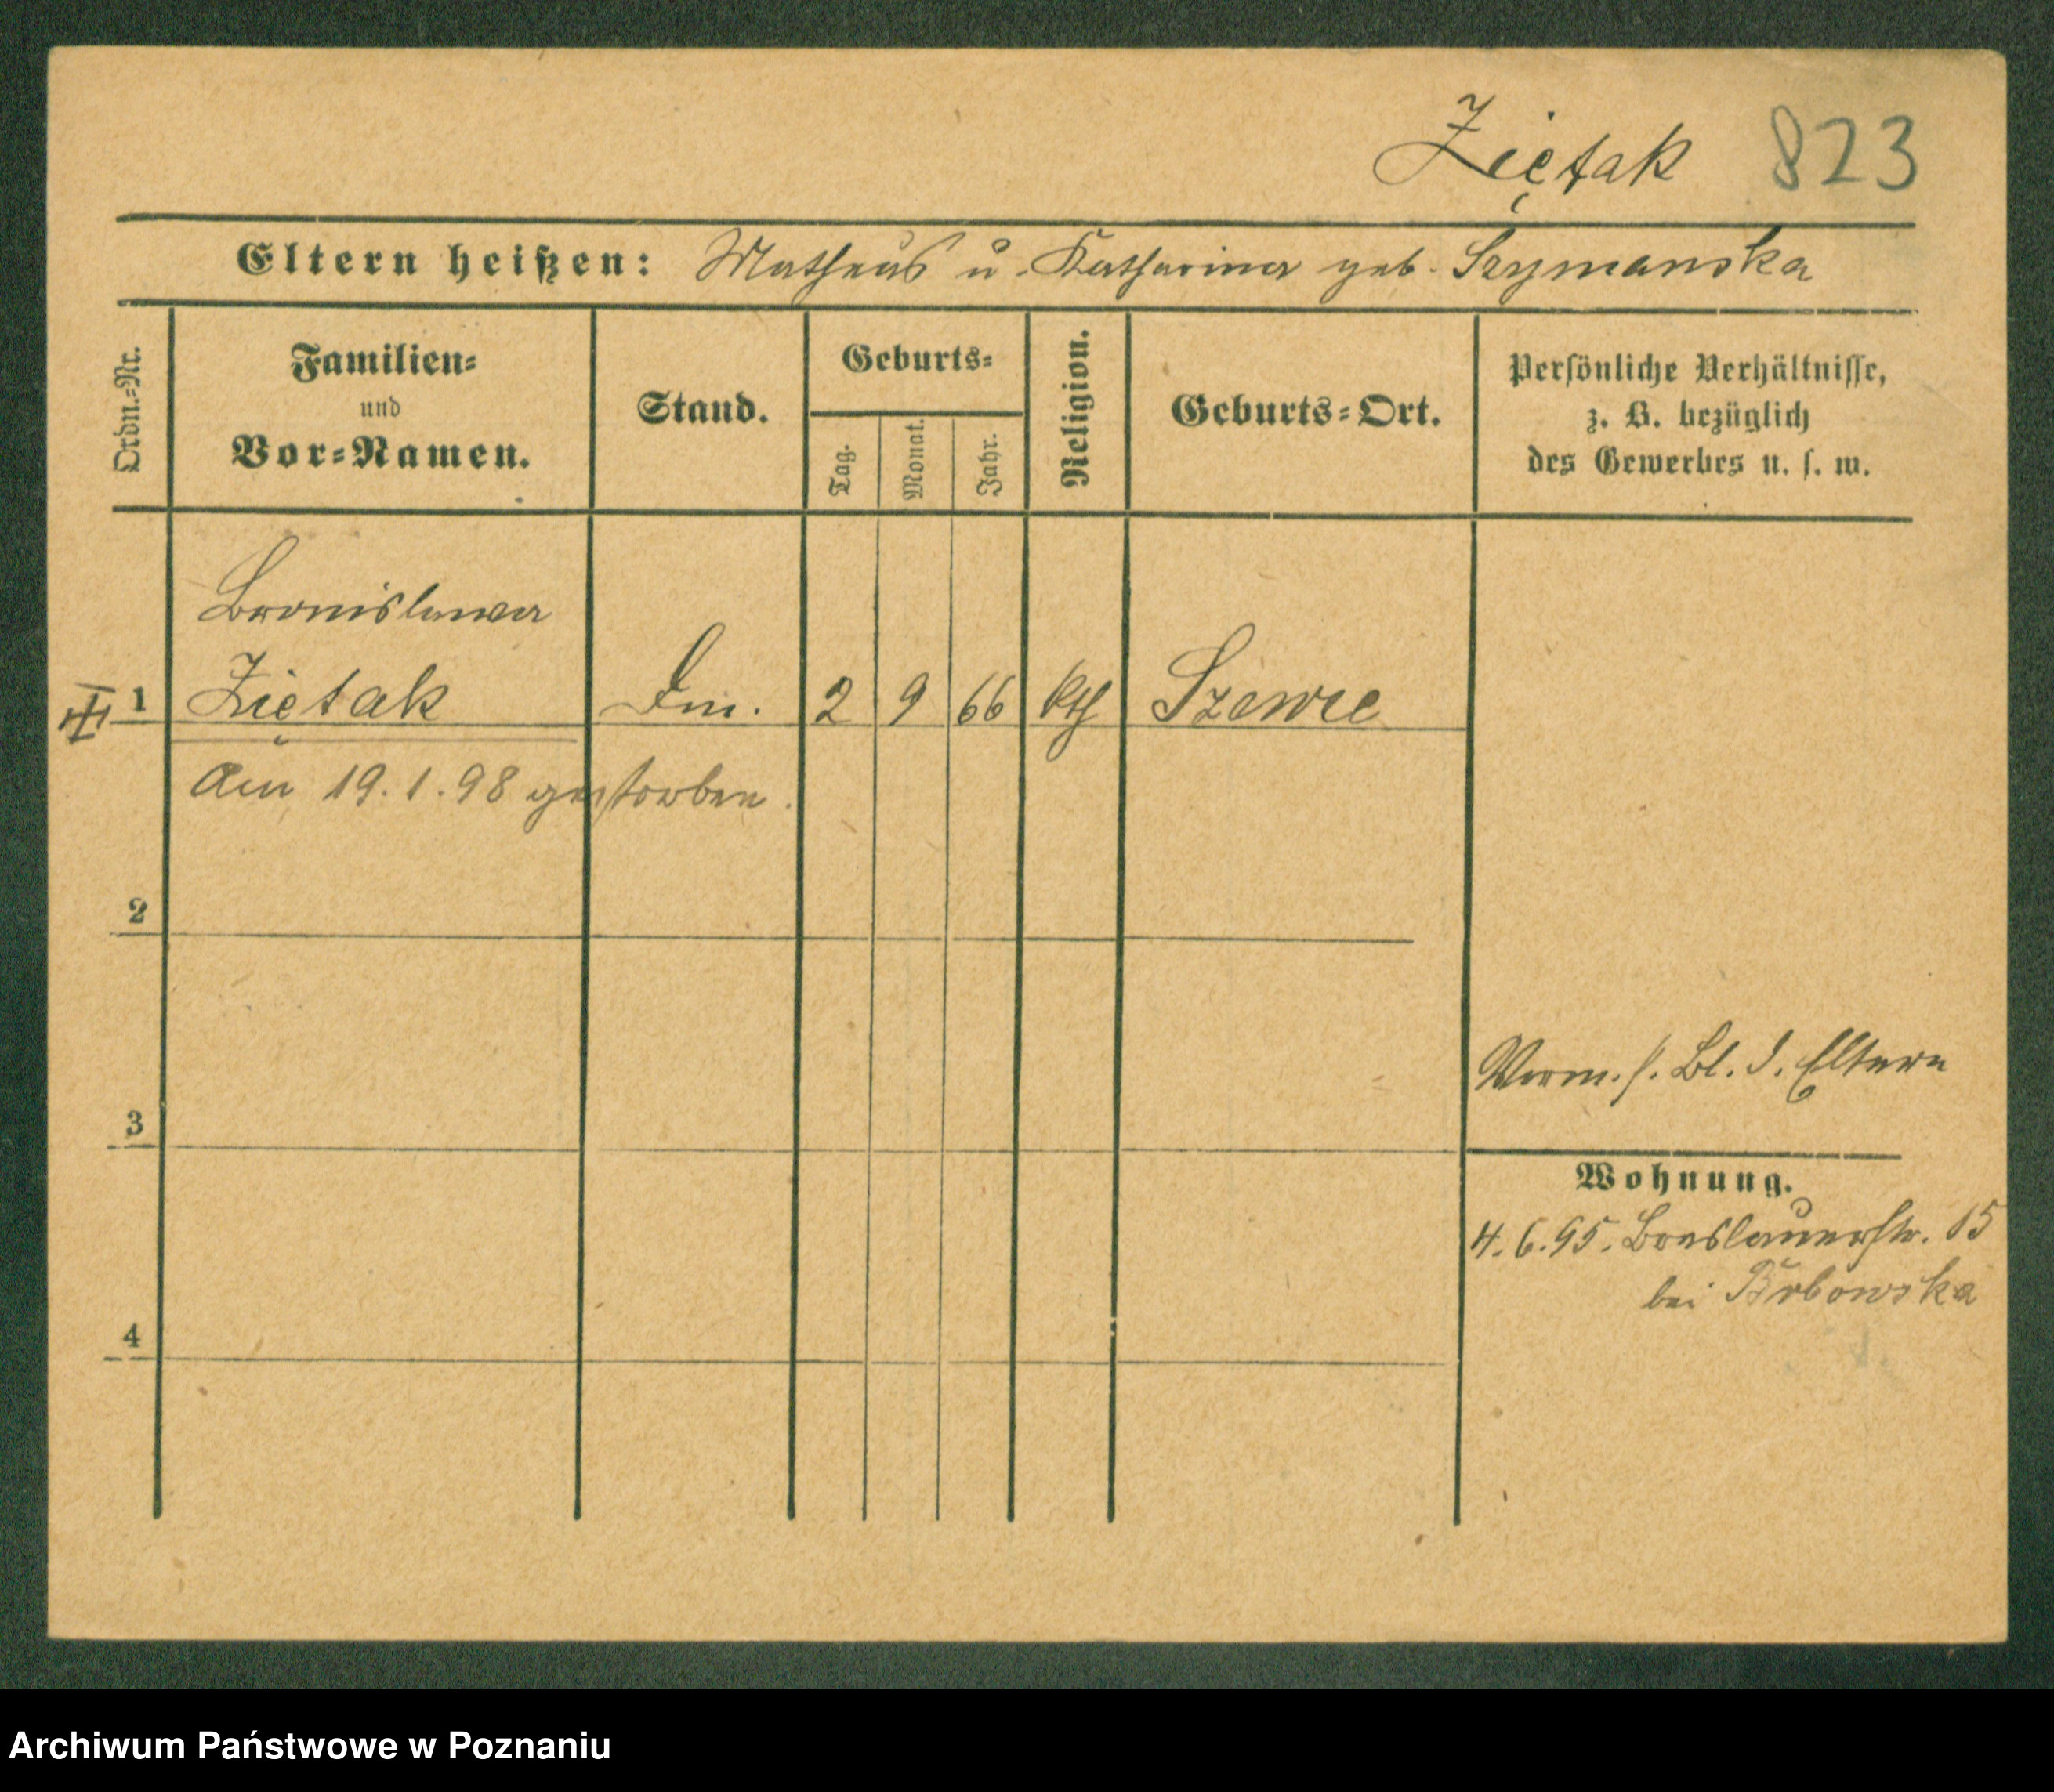 Ziętak 823
Eltern heißen: Matheus u. Katharina geb. Szymanska
Ordn.=Nr.
Familien=
und
Vor=Namen.
Stand.
Geburts=
Tag.
Monat.
Jahr.
Religion.
Geburts=Ort.
Persönliche Verhältnisse,
z. B. bezüglich
des Gewerbes u. s. w.
Bronislawa
1 Ziętak 2 9 66 kth Szewce
Am 19.1.98 gestorben.
2
Verm. s. Bl. d. Eltern
3
Wohnung.
4.6.95. Breslauerstr. 15
bei
4
Archiwum Państwowe w Poznaniu